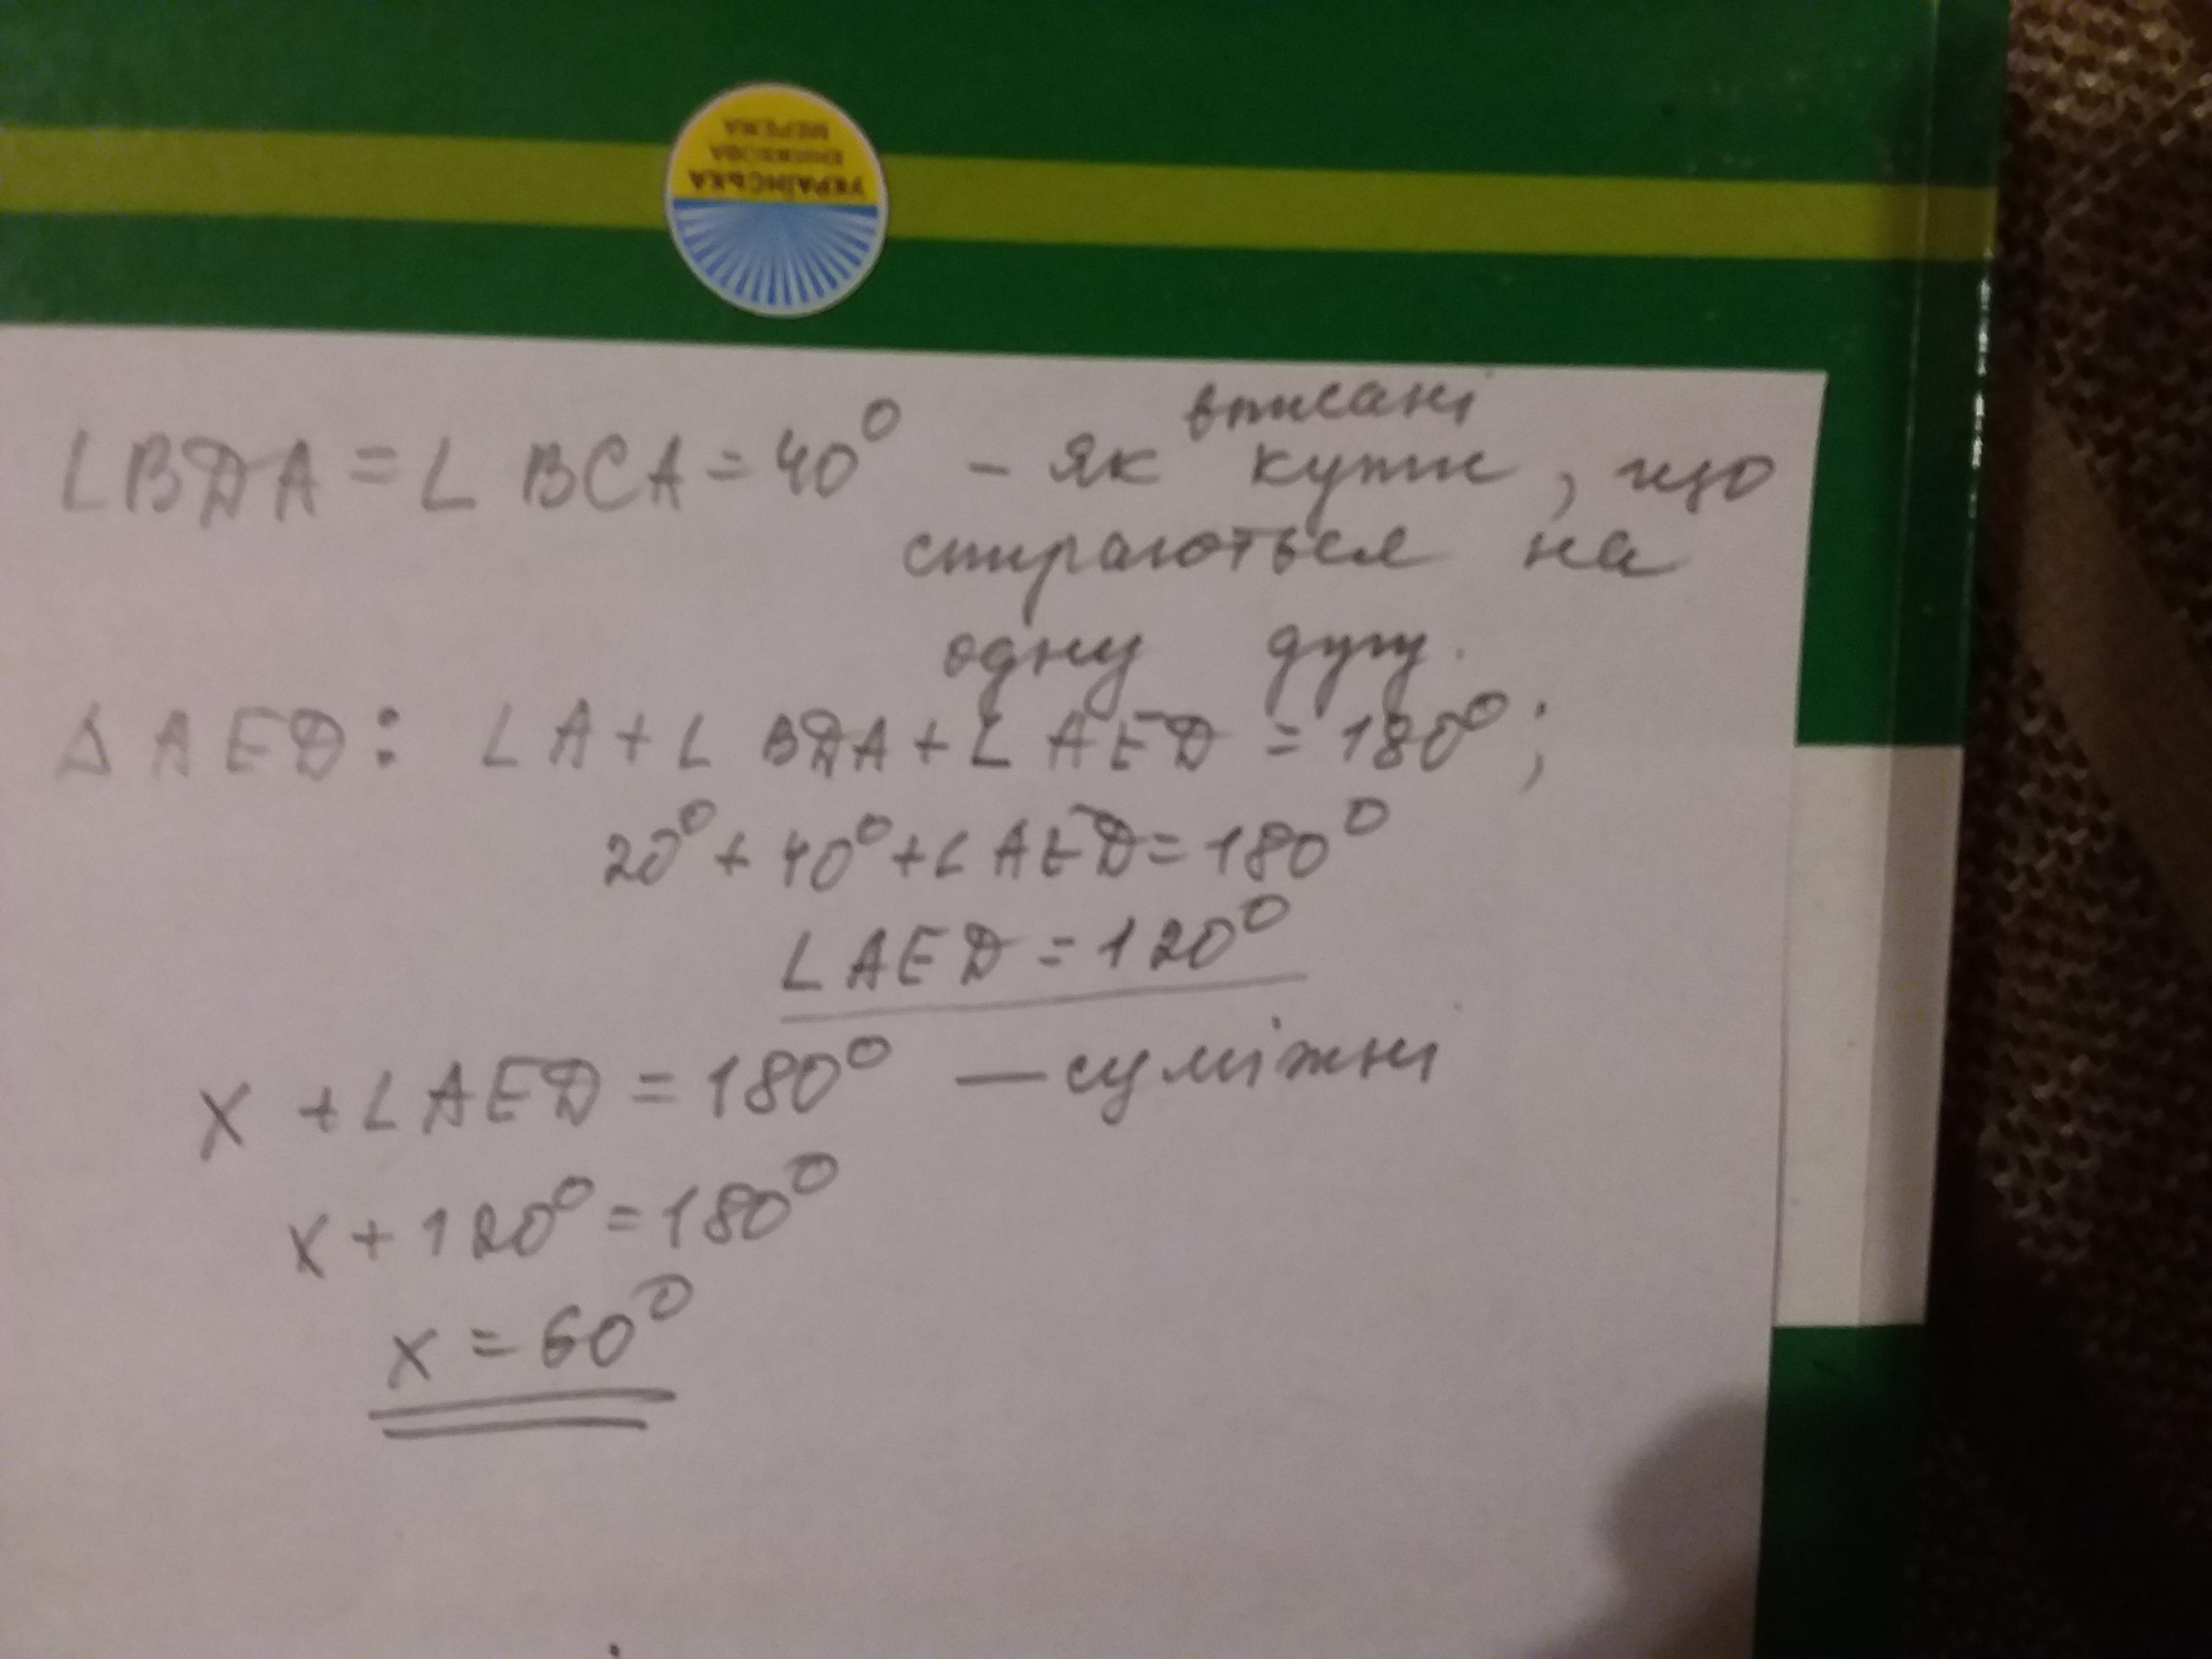 УКРАЇНСЬКА
КНИЖКОВА
МЕРЕЖА
∠BDA = ∠ BCA = 40° – як вписані кути, що
спираються на
одну дугу.
Δ AED: ∠A + ∠ BDA + ∠ AED = 180°;
20° + 40° + ∠ AED = 180°
∠ AED = 120°
x + ∠AED = 180° — суміжні
x + 120° = 180°
x = 60°